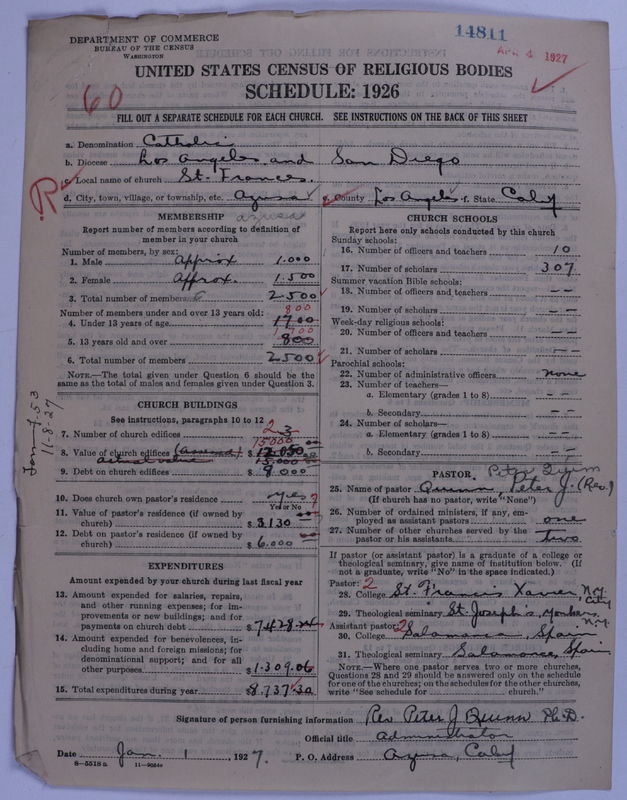 DEPARTMENT OF COMMERCE
BUREAU OF THE CENSUS
WASHINGTON
14811
1927
UNITED STATES CENSUS OF RELIGIOUS BODIES
SCHEDULE: 1926
60
FILL OUT A SEPARATE SCHEDULE FOR EACH CHURCH. SEE INSTRUCTIONS ON THE BACK OF THIS SHEET
a. Denomination Catholic
b. Diocese Los Angeles and San Diego
c. Local name of church St. Frances.
d. City, town, village, or township, etc. Azusa e. County Los Angeles f. State Calif
azusa
MEMBERSHIP
Report number of members according to definition of
member in your church
Number of members, by sex:
1. Male approx 1.000
2. Female approx. 1.500
3. Total number of members 2500
Number of members under and over 13 years old:
800
4. Under 13 years of age 1700
1700
5. 13 years old and over 800
6. Total number of members 2500
NOTE.—The total given under Question 6 should be the
same as the total of males and females given under Question 3.
CHURCH BUILDINGS
See instructions, paragraphs 10 to 12
7. Number of church edifices 2 3
15000
8. Value of church edifices (assessed) $ 12.050
actual value 15.000
9. Debt on church edifices $ 8000
10. Does church own pastor's residence yes
Yes or No
11. Value of pastor's residence (if owned by
church) $ 3130
12. Debt on pastor's residence (if owned by
church) $ 6.000
EXPENDITURES
Amount expended by your church during last fiscal year
13. Amount expended for salaries, repairs,
and other running expenses; for im-
provements or new buildings; and for
payments on church debt $ 7428.24
14. Amount expended for benevolences, in-
cluding home and foreign missions; for
denominational support; and for all
other purposes $ 1.309.06
15. Total expenditures during year $ 8.737.30
CHURCH SCHOOLS
Report here only schools conducted by this church
Sunday schools:
16. Number of officers and teachers 10
17. Number of scholars 307
Summer vacation Bible schools:
18. Number of officers and teachers — —
19. Number of scholars — —
Week-day religious schools:
20. Number of officers and teachers — —
21. Number of scholars — —
Parochial schools:
22. Number of administrative officers none
23. Number of teachers—
a. Elementary (grades 1 to 8) — —
b. Secondary — —
24. Number of scholars—
a. Elementary (grades 1 to 8) — —
b. Secondary — —
PASTOR
Peter Quinn
25. Name of pastor Quinn Peter J. (Rev.)
(If church has no pastor, write "None")
26. Number of ordained ministers, if any, em-
ployed as assistant pastors one
27. Number of other churches served by the
pastor or his assistants two
If pastor (or assistant pastor) is a graduate of a college or
theological seminary, give name of institution below. (If
not a graduate, write "No" in the space indicated.)
Pastor: 2
28. College St. Francis Xavier N.Y. City
29. Theological seminary St. Joseph's, Yonkers, N.Y.
Assistant pastor: 2
30. College Salamanca, Spain
31. Theological seminary Salamanca, Spain
NOTE.—Where one pastor serves two or more churches,
Questions 28 and 29 should be answered only on the schedule
for one of the churches; on the schedules for the other churches,
write "See schedule for church."
Signature of person furnishing information Rev Peter J Quinn Ph.D.
Official title administrator
Date Jan. 1, 1927. P. O. Address Azusa, Calif
8-5518 a
11-8-27